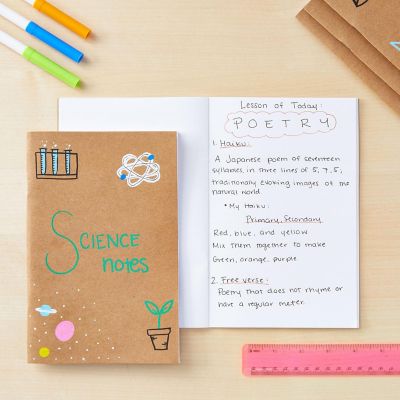 SCIENCE
notes
Lesson of Today:
POETRY
1. Haiku:
A Japanese poem of seventeen
syllables, in three lines of 5, 7, 5,
traditionally evoking images of the
natural world.
• My Haiku:
Primary, Secondary
Red, blue, and yellow
Mix them together to make
Green, orange, purple
2. Free verse:
Poetry that does not rhyme or
have a regular meter.